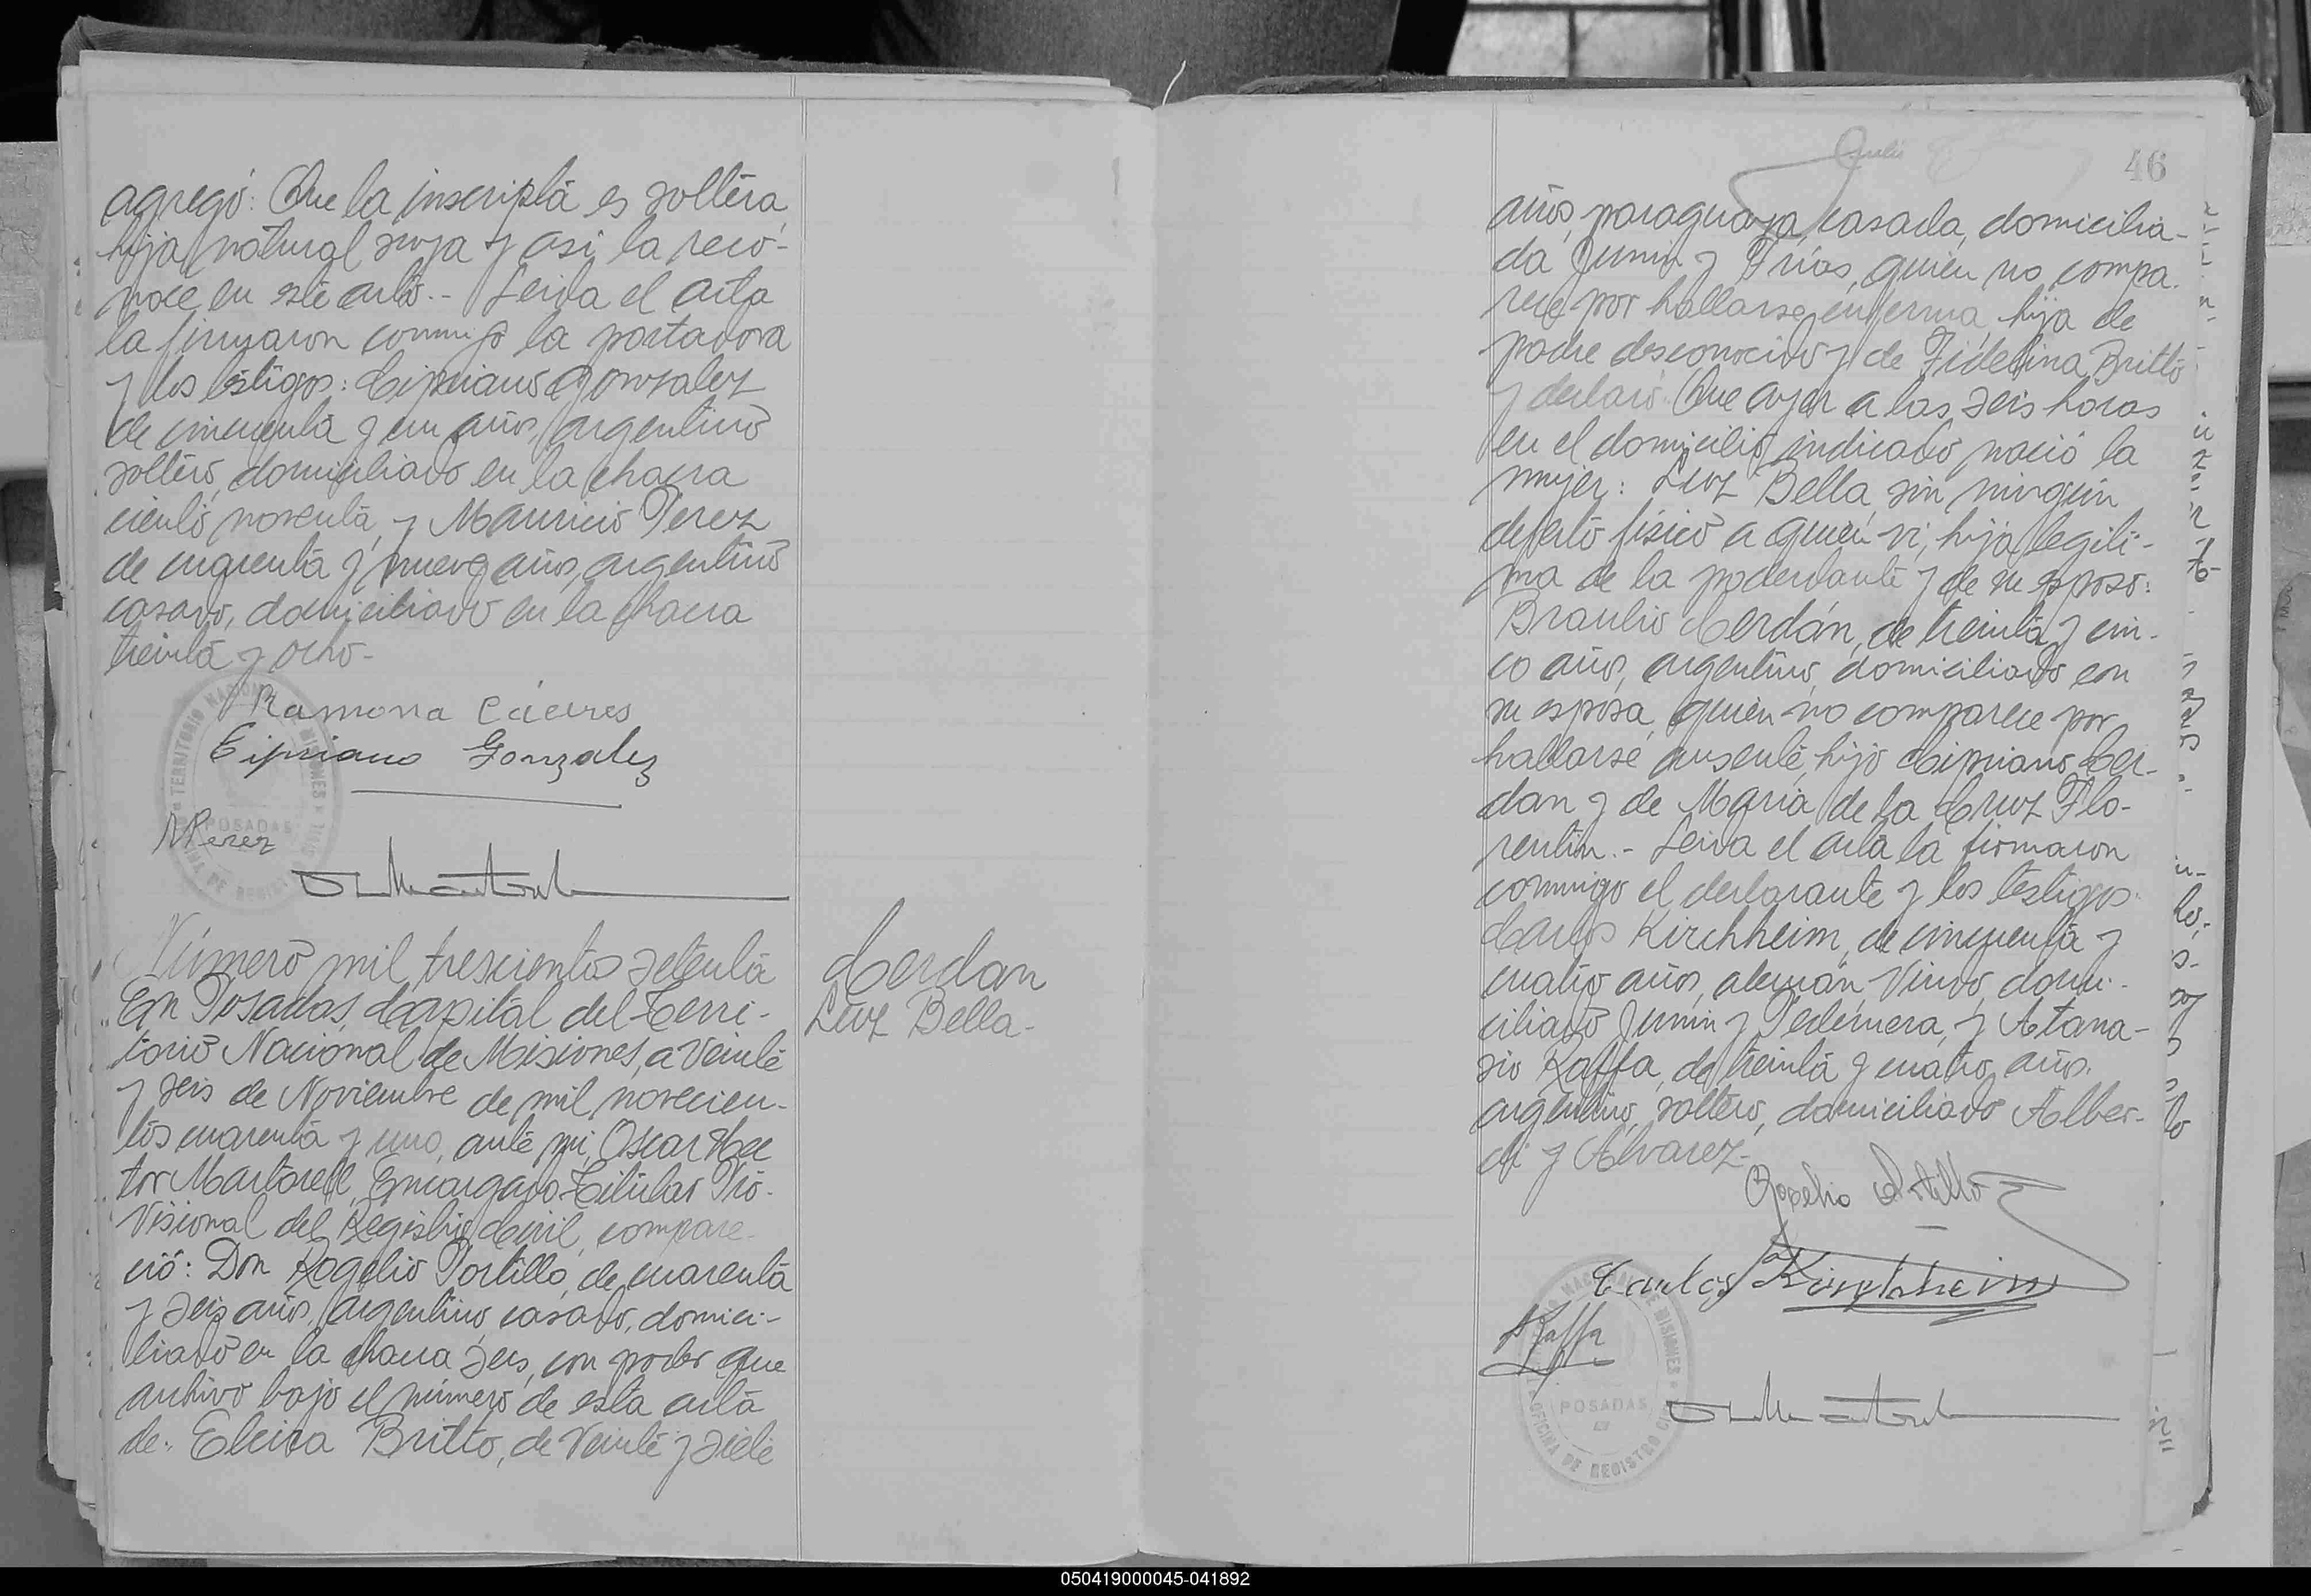 agregó: Que la inscripta es soltera,
hija natural suya y así la reco-
noce en este acto.- Leida el acta
la firmaron conmigo la portadora
y los testigos: Cipriano Gonzalez
de cincuenta y un años, argentino
soltero, domiciliado en la chacra
ciento noventa, y Mauricio Perez
de cuarenta y nueve años, argentino
casado, domiciliado en la chacra
treinta y ocho-
Ramona Cáceres
Cipriano Gonzalez
MPerez
TERRITORIO NACIONAL DE MISIONES
POSADAS
OFICINA DE REGISTRO CIVIL
Número mil trescientos setenta
En Posadas, Capital del Terri-
torio Nacional de Misiones, a veinte
y seis de Noviembre de mil novecien-
tos cuarenta y uno, ante mi, Oscar Hec
tor Martorell, Encargado Titular Pro-
visional del Registro Civil, compare-
ció: Don Rogelio Portillo, de cuarenta
y seis años, argentino, casado, domici-
liado en la chacra seis, con poder que
archivo bajo el número de esta acta
de: Eleira Britto, de veinte y siete
Cerdan
Luz Bella-
46
años, paraguaya, casada, domicilia-
da Junin y Frías, quien no compa-
rece por hallarse enferma, hija de
padre desconocido y de Fidelina Britto
y declaró: Que ayer a las seis horas
en el domicilio indicado nació la
mujer: Luz Bella sin ningún
defecto físico a quien vi, hija legíti-
ma de la poderdante y de su esposo:
Braulio Cerdán, de treinta y cin-
co años, argentino, domiciliado con
su esposa, quien no comparece por
hallarse ausente, hijo Cipriano Cer-
dan y de María de la Cruz Flo-
rentin.- Leida el acta la firmaron
conmigo el declarante y los testigos:
Carlos Kirchheim, de cincuenta y
cuatro años, alemán, viudo, domi-
ciliado Junin y Pedernera, y Atana-
sio Kaffa, de treinta y cuatro años,
argentino, soltero, domiciliado Alber-
di y Alvarez-
Rogelio Portillo
Carlos Kirchheim
AKaffa
TERRITORIO NACIONAL DE MISIONES
POSADAS
OFICINA DE REGISTRO CIVIL
050419000045-041892